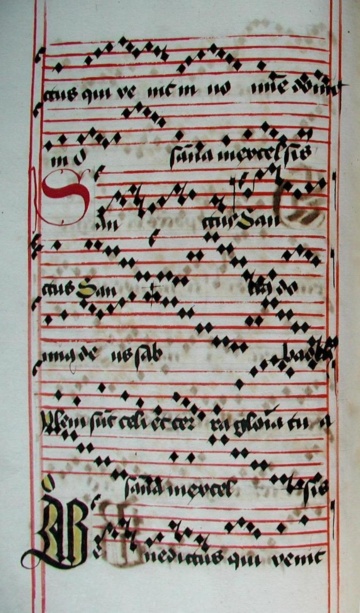 ctus qui ve nit in no mīe domi
in O sanna in excelsis
San ctus San
ctus San ctus do
minus de us sab baoth
Pleni sūt celi et ter ra gloria tu a
sanna in excel sis
Be nedictus qui venit